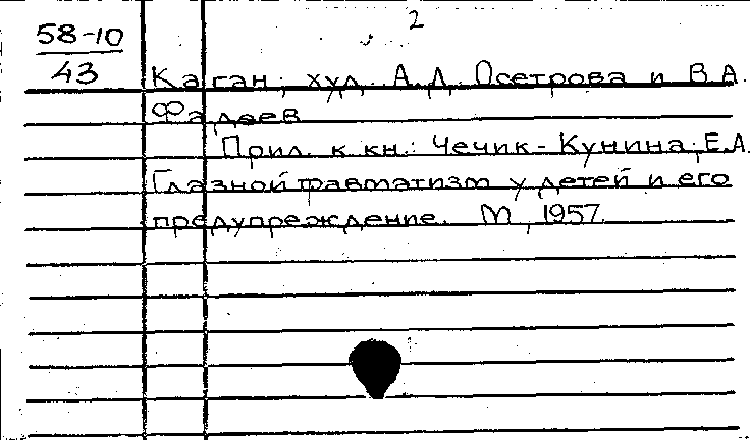 2
58-10
43
Каган; худ. А.Д. Осетрова и В.А.
Фадеев
Прил. к кн.: Чечик-Кунина, Е.А.
Глазной травматизм у детей и его
предупреждение. М., 1957.